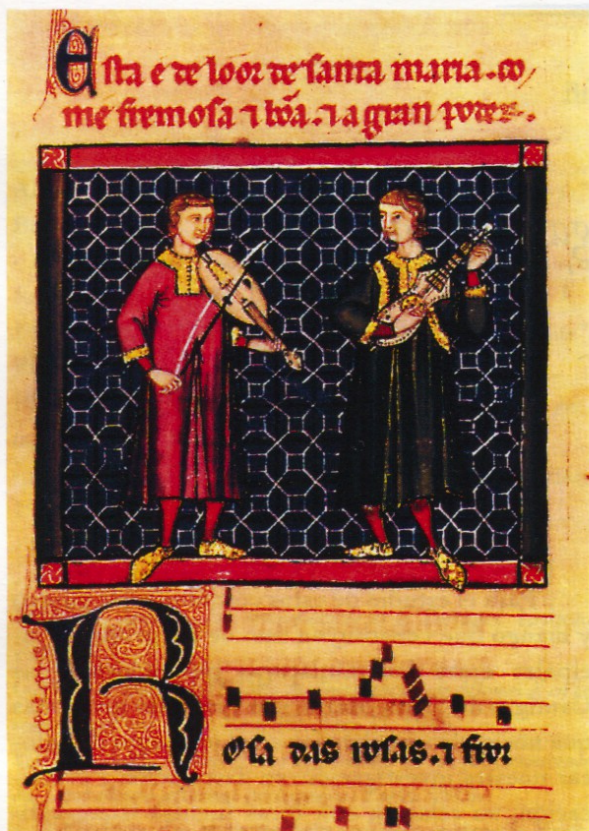 Esta e de loor de santa maria. co
me fremosa ⁊ bõa. ⁊ a gran poder.
Rosa das rosas. ⁊ fror